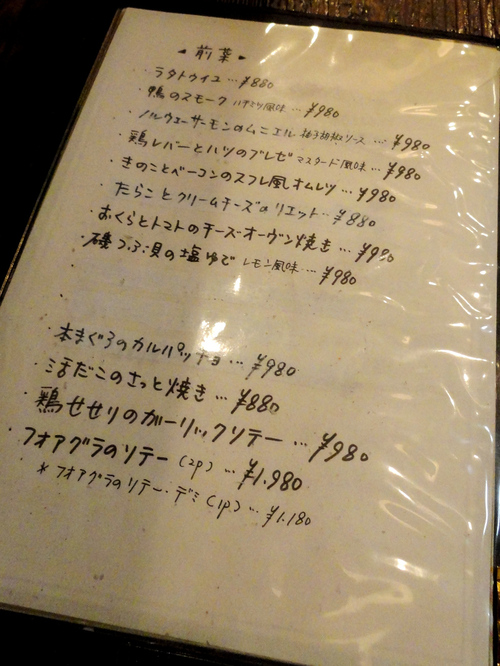 前菜
・ラタトゥイユ…¥880
・鴨のスモーク ハチミツ風味…¥980
・ノルウェーサーモンのムニエル 柚子胡椒ソース…¥980
・鶏レバーとハツのブレゼ マスタード風味…¥980
・きのことベーコンのスフレ風オムレツ…¥980
・たらことクリームチーズのリエット…¥880
・おくらとトマトのチーズオーヴン焼き…¥980
・磯つぶ貝の塩ゆで レモン風味…¥980
・本まぐろのカルパッチョ…¥980
・活だこのさっと焼き…¥880
・鶏せせりのガーリックソテー…¥980
・フォアグラのソテー(2p)…¥1.980
*フォアグラのソテー・デミ(1p)…¥1.180